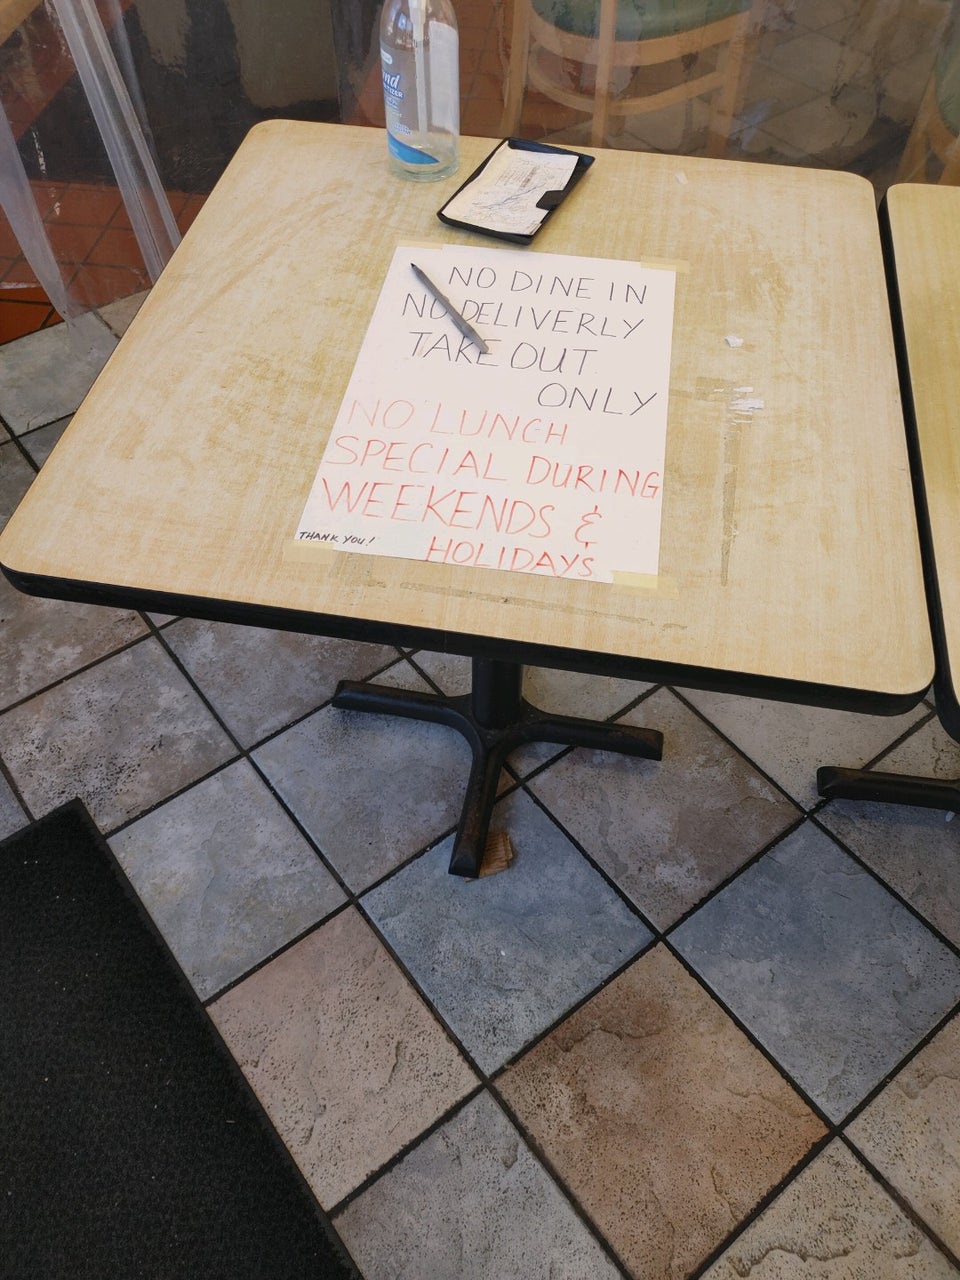 NO DINE IN
NO DELIVERLY
TAKE OUT
ONLY
NO LUNCH
SPECIAL DURING
WEEKENDS &
HOLIDAYS
THANK YOU!